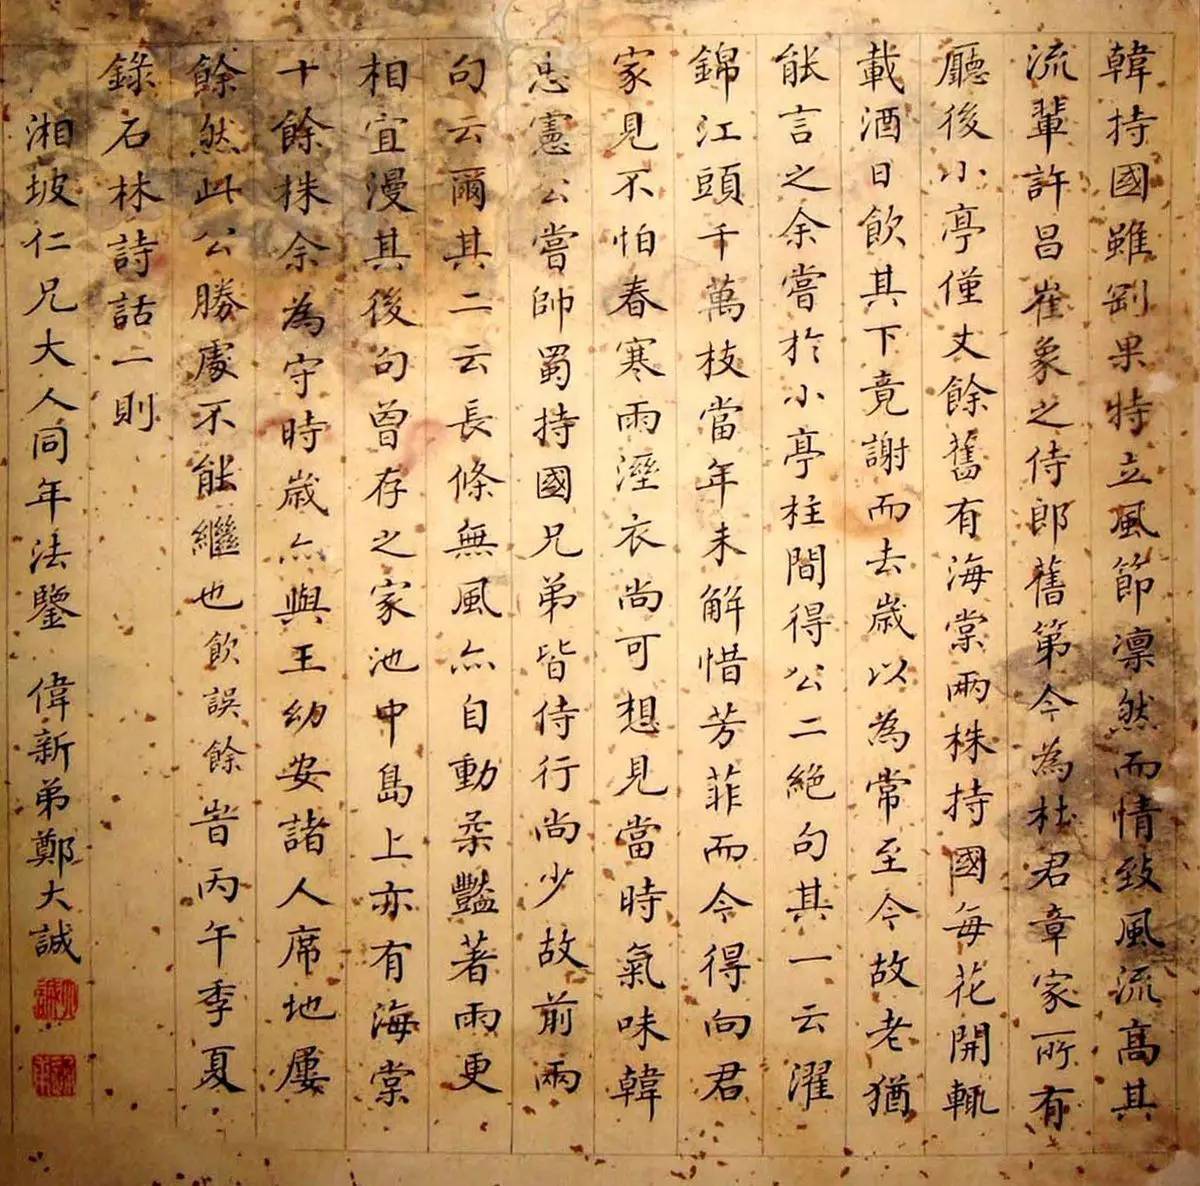 韓持國雖剛果特立風節凛然而情致風流高其
流輩許昌崔象之侍郎舊第今為杜君章家所有
廳後小亭僅丈餘舊有海棠兩株持國每花開輒
載酒日飲其下竟謝而去歲以為常至今故老猶
能言之余嘗於小亭柱間得公二絕句其一云濯
錦江頭千萬枝當年未解惜芳菲而今得向君
家見不怕春寒雨溼衣尚可想見當時氣味韓
忠憲公嘗帥蜀持國兄弟皆侍行尚少故前兩
句云爾其二云長條無風亦自動柔豔著雨更
相宜漫其後句曾存之家池中島上亦有海棠
十餘株余為守時歲亦與王幼安諸人席地屢
餘然此公勝處不能繼也飲誤餘旹丙午季夏
錄石林詩話一則
湘坡仁兄大人同年法鑒 偉新弟鄭大誠